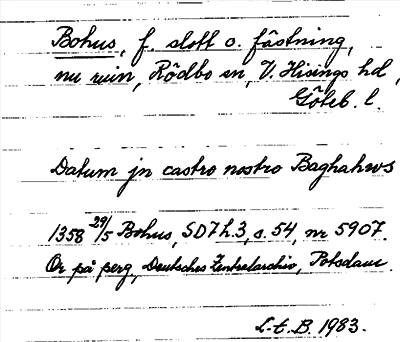 Bohus, f. slott o. fästning,
nu ruin, Rödbo sn, V. Hisings hd,
Göteb. l.
Datum jn castro nostro Baghahws
1358 29/5 Bohus, SD 7 h. 3, s. 54, nr 5907.
Or på perg., Deutsches Zentralarchiv, Potsdam.
L-t. B. 1983.